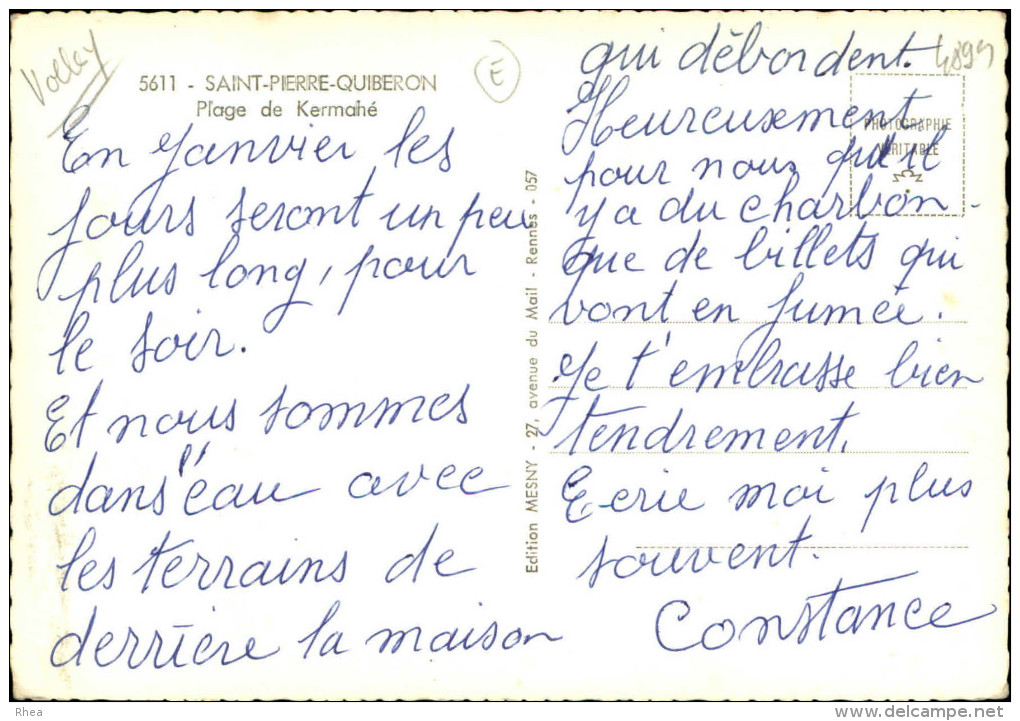 Volley
5611 - SAINT-PIERRE-QUIBERON
Plage de Kermahé
E
En Janvier les
jours seront un peu
plus long, pour
le soir.
Et nous sommes
dans l'eau avec
les terrains de
derrière la maison
Edition MESNY - 27, avenue du Mail - Rennes - 057
qui débordent.
PHOTOGRAPHIE
VÉRITABLE
Heureusement
pour nous qu'il
y a du charbon -
que de billets qui
vont en fumée.
Je t'embrasse bien
tendrement.
Ecrie moi plus
souvent.
Constance
Rhea
www.delcampe.net